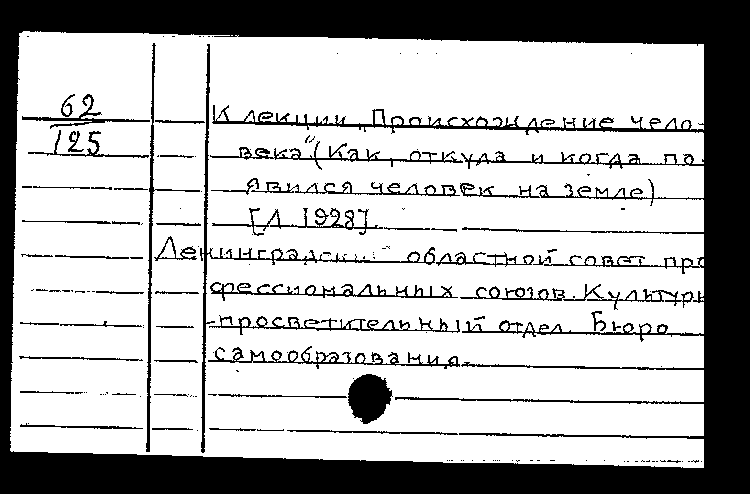 62
125
К лекции „Происхождение чело-
века“ (Как, откуда и когда по-
явился человек на земле)
[Л 1928].
Ленинградский областной совет про
фессиональных союзов. Культурн
-просветительный отдел. Бюро
самообразования.